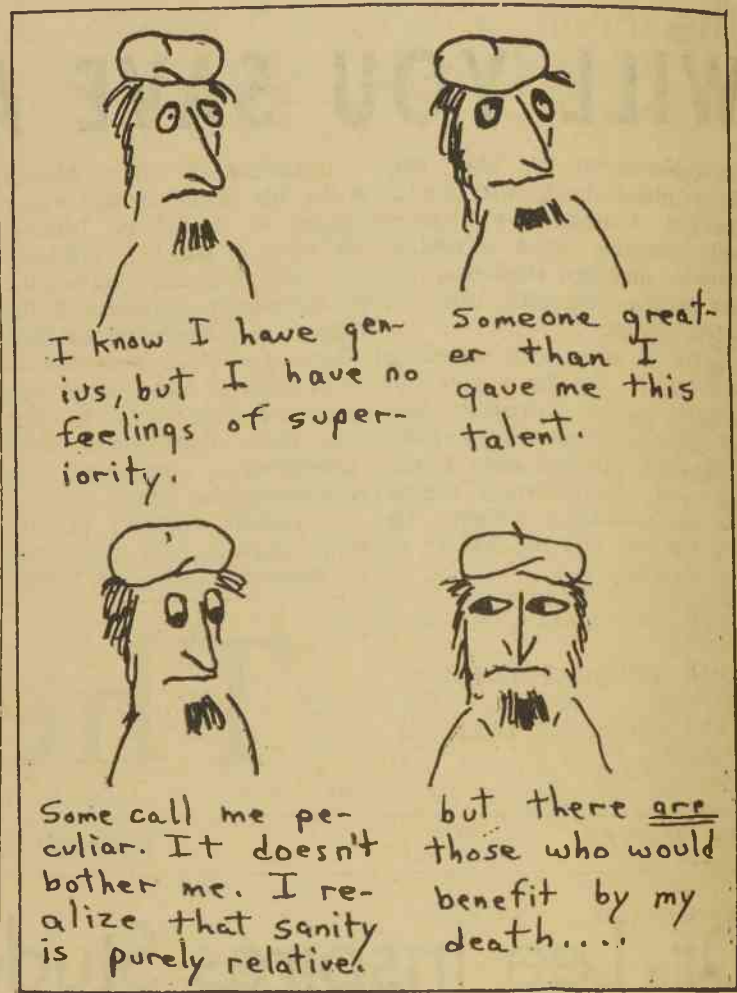 I know I have gen-
ius, but I have no
feelings of super-
iority.
Someone great-
er than I
gave me this
talent.
Some call me pe-
culiar. It doesn't
bother me. I re-
alize that sanity
is purely relative.
but there are
those who would
benefit by my
death....